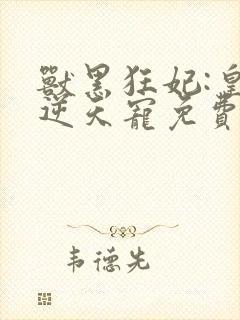 獸黑狂妃:皇
逆天寵免費
韦德先